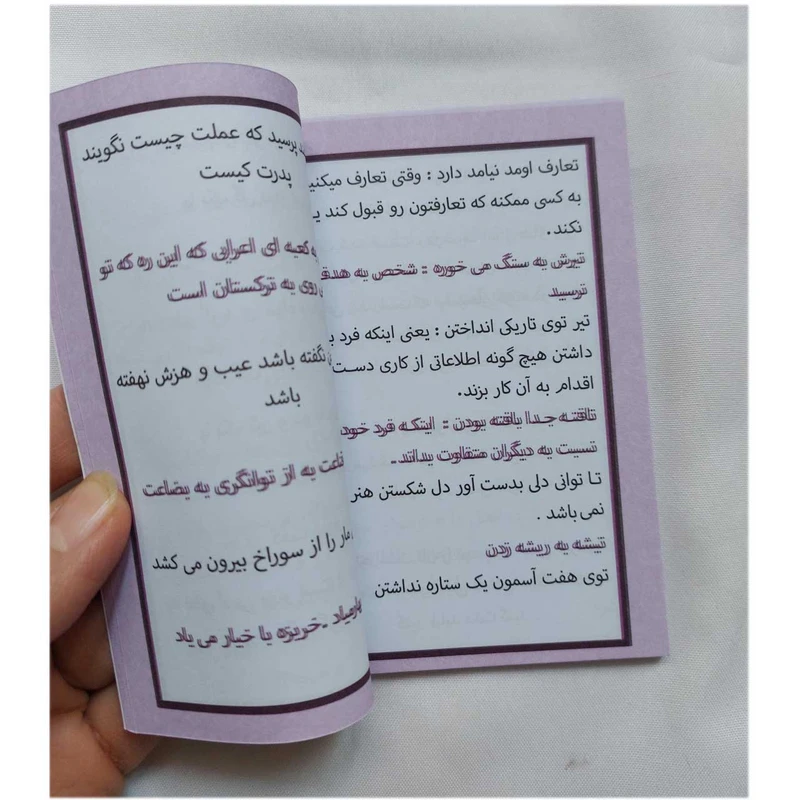 تعارف اومد نیامد دارد : وقتی تعارف میکنی
به کسی ممکنه که تعارفتون رو قبول کند یـ
نکند .
تیرش به سنگ می خوره : شخص به هدف
نرسید
تیر توی تاریکی انداختن : یعنی اینکه فرد بـ
داشتن هیچ گونه اطلاعاتی از کاری دست
اقدام به آن کار بزند.
تافته جدا بافته بودن : اینکه فرد خود
نسبت به دیگران متفاوت بداند.
تـا توانی دلی بدست آور دل شکستن هنر
نمی باشد .
تیشه به ریشه زدن
توی هفت آسمون یک ستاره نداشتن
پرسید که عملت چیست نگویند
پدرت کیست
به کعبه ای اعرابی که این ره که تو
روی به ترکستان است
نگفته باشد عیب و هنرش نهفته
باشد
به از توانگری به بضاعت
مار را از سوراخ بیرون می کشد
خربزه با خیار می یاد